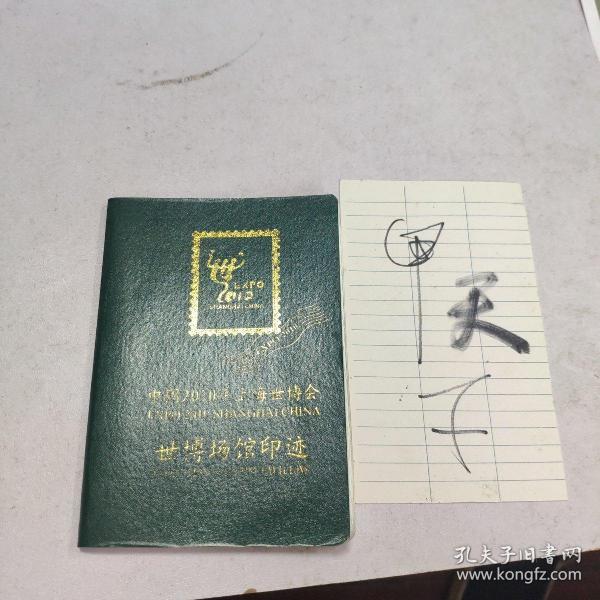 EXPO
2010
SHANGHAI CHINA
中国2010年上海世博会
EXPO 2010 SHANGHAI CHINA
世博场馆印迹
甲
天
下
孔夫子旧书网
www.kongfz.com